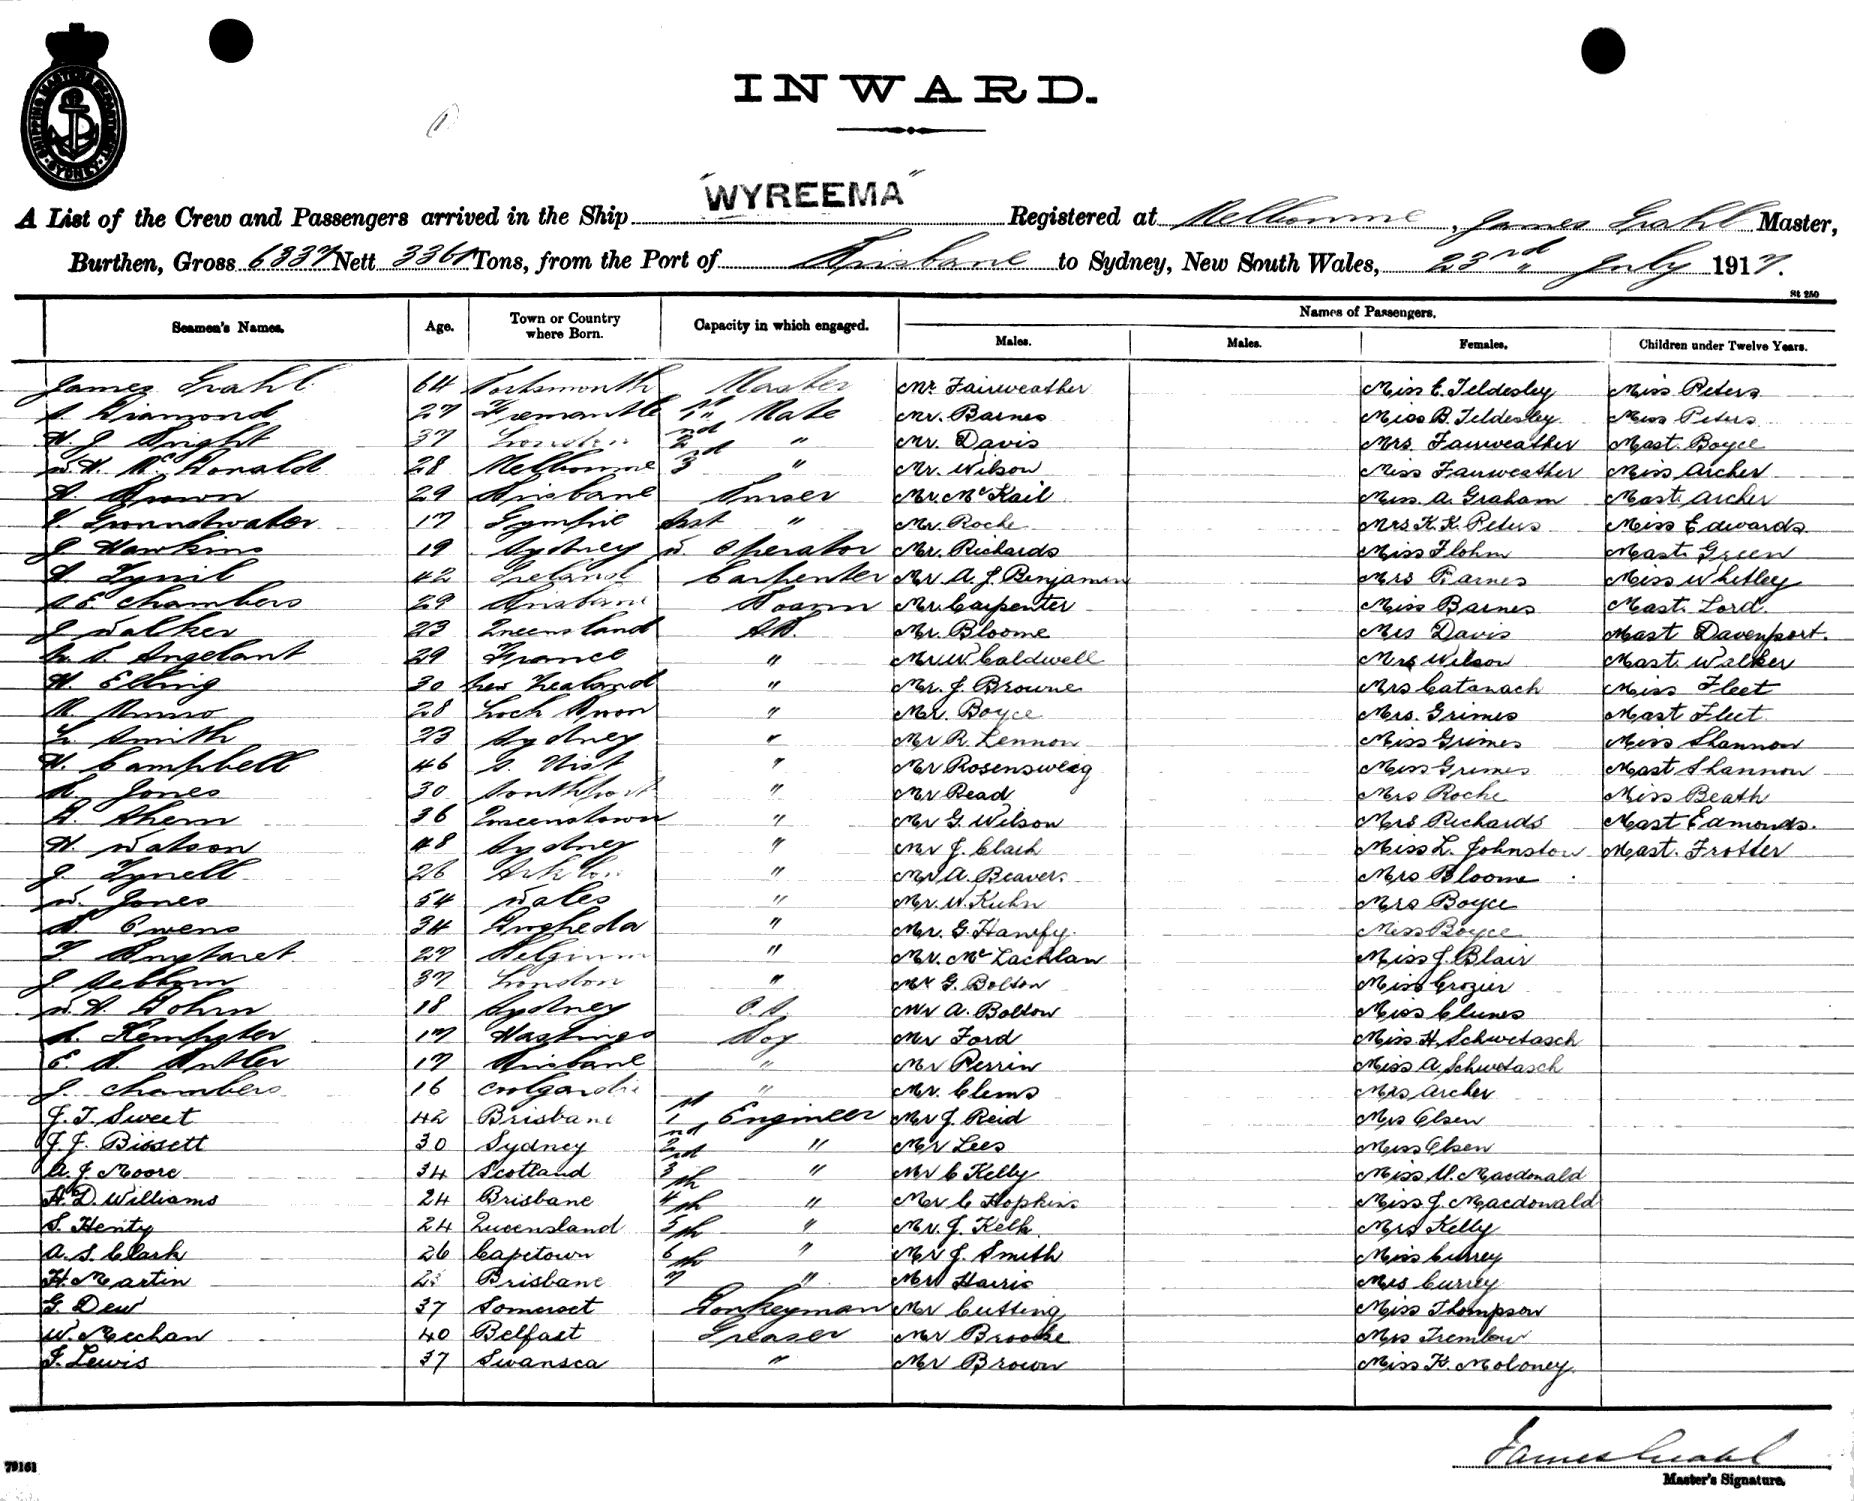 SHIPPING MASTER'S DEPARTMENT SYDNEY
INWARD.
"WYREEMA"
A List of the Crew and Passengers arrived in the Ship Registered at Melbourne, James Grahl Master,
Burthen, Gross 6337 Nett 3361 Tons, from the Port of Brisbane to Sydney, New South Wales, 23rd July 1917.
St 250
Seamen's Names. Age. Town or Country where Born. Capacity in which engaged. Names of Passengers.
Males. Males. Females. Children under Twelve Years.
James Grahl 64 Portsmouth Master Mr Fairweather Miss E. Teldesley Miss Peters
Diamond 27 Fremantle 1st Mate Mr. Barnes Miss B. Teldesley Miss Peters
37 London 2nd " Mr. Davis Mrs Fairweather Mast. Boyce
W. H. McDonald 28 Melbourne 3rd " Mr. Wilson Miss Fairweather Miss Archer
Brown 29 Brisbane Purser Mr. McKail Miss. A. Graham Mast. Archer
Groundwater 17 Gympie Asst " Mr. Roche Mrs K. K. Peters Miss Edwards
J Hawkins 19 Sydney W. Operator Mr. Richards Miss Flohm Mast. Green
42 Ireland Carpenter Mr A. J. Benjamin Mrs Barnes Miss Whitley
Chambers 29 Brisbane Mr. Carpenter Miss Barnes Mast. Lord
J Walker 23 Queensland A.B. Mr. Bloome Mrs Davis Mast Davenport.
Angelant 29 France " Mr W. Caldwell Mrs Wilson Mast. Walker
30 New Zealand " Mr. J. Browne Mrs Catanach Miss Fleet
Munro 28 Loch " Mr. Boyce Mrs. Grimes Mast Fleet
Smith 23 Sydney " Mr R. Lennon Miss Grimes Miss Shannon
Campbell 46 S. Uist " Mr Rosensweig Miss Grimes Mast Shannon
Jones 30 Southport " Mr Read Mrs Roche Miss Beath
Ahern 36 Queenstown " Mr G. Wilson Mrs Richards Mast Edmonds.
Watson 48 Sydney " Mr J. Clark Miss L. Johnston Mast. Trotter
J. Tynell 26 " Mr A. Beavers Mrs Bloome
W. Jones 54 Wales " Mr. W. Kuhn Mrs Boyce
Owens 34 " Mr. G. Miss Boyce
27 Belgium " Mr. McLachlan Miss J. Blair
J 37 London " Mr G. Bolton Miss Crozier
18 Sydney O.S. Mr A. Bolton Miss Clunes
Kempster 17 Hastings Boy Mr Ford Miss H. Schwetasch
Butler 17 Brisbane " Mr Perrin Miss A. Schwetasch
J. Chambers 16 Coolgardie " Mr. Clems Mrs Archer
J. T. Sweet 42 Brisbane 1st Engineer Mr J. Reid Mrs Olsen
J. J. Bissett 30 Sydney 2nd " Mr Lees Miss Olsen
A. J. Moore 34 Scotland 3rd " Mr C Kelly Miss M. Macdonald
H. D. Williams 24 Brisbane 4th " Mr C Hopkins Miss J. Macdonald
S. Henty 24 Queensland 5th " Mr. J. Kelk Mrs Kelly
A. S. Clark 26 Capetown 6th " Mr J. Smith Miss Currey
H. Martin 23 Brisbane 7th " Mr Harris Mrs Currey
G. Dew 37 Somerset Donkeyman Mr Cutting Miss Thompson
W. Meehan 40 Belfast Greaser Mr Brooke Mrs Tremlow
J. Lewis 37 Swansea " Mr Brown Miss K. Moloney.
James Grahl
Master's Signature.
79161